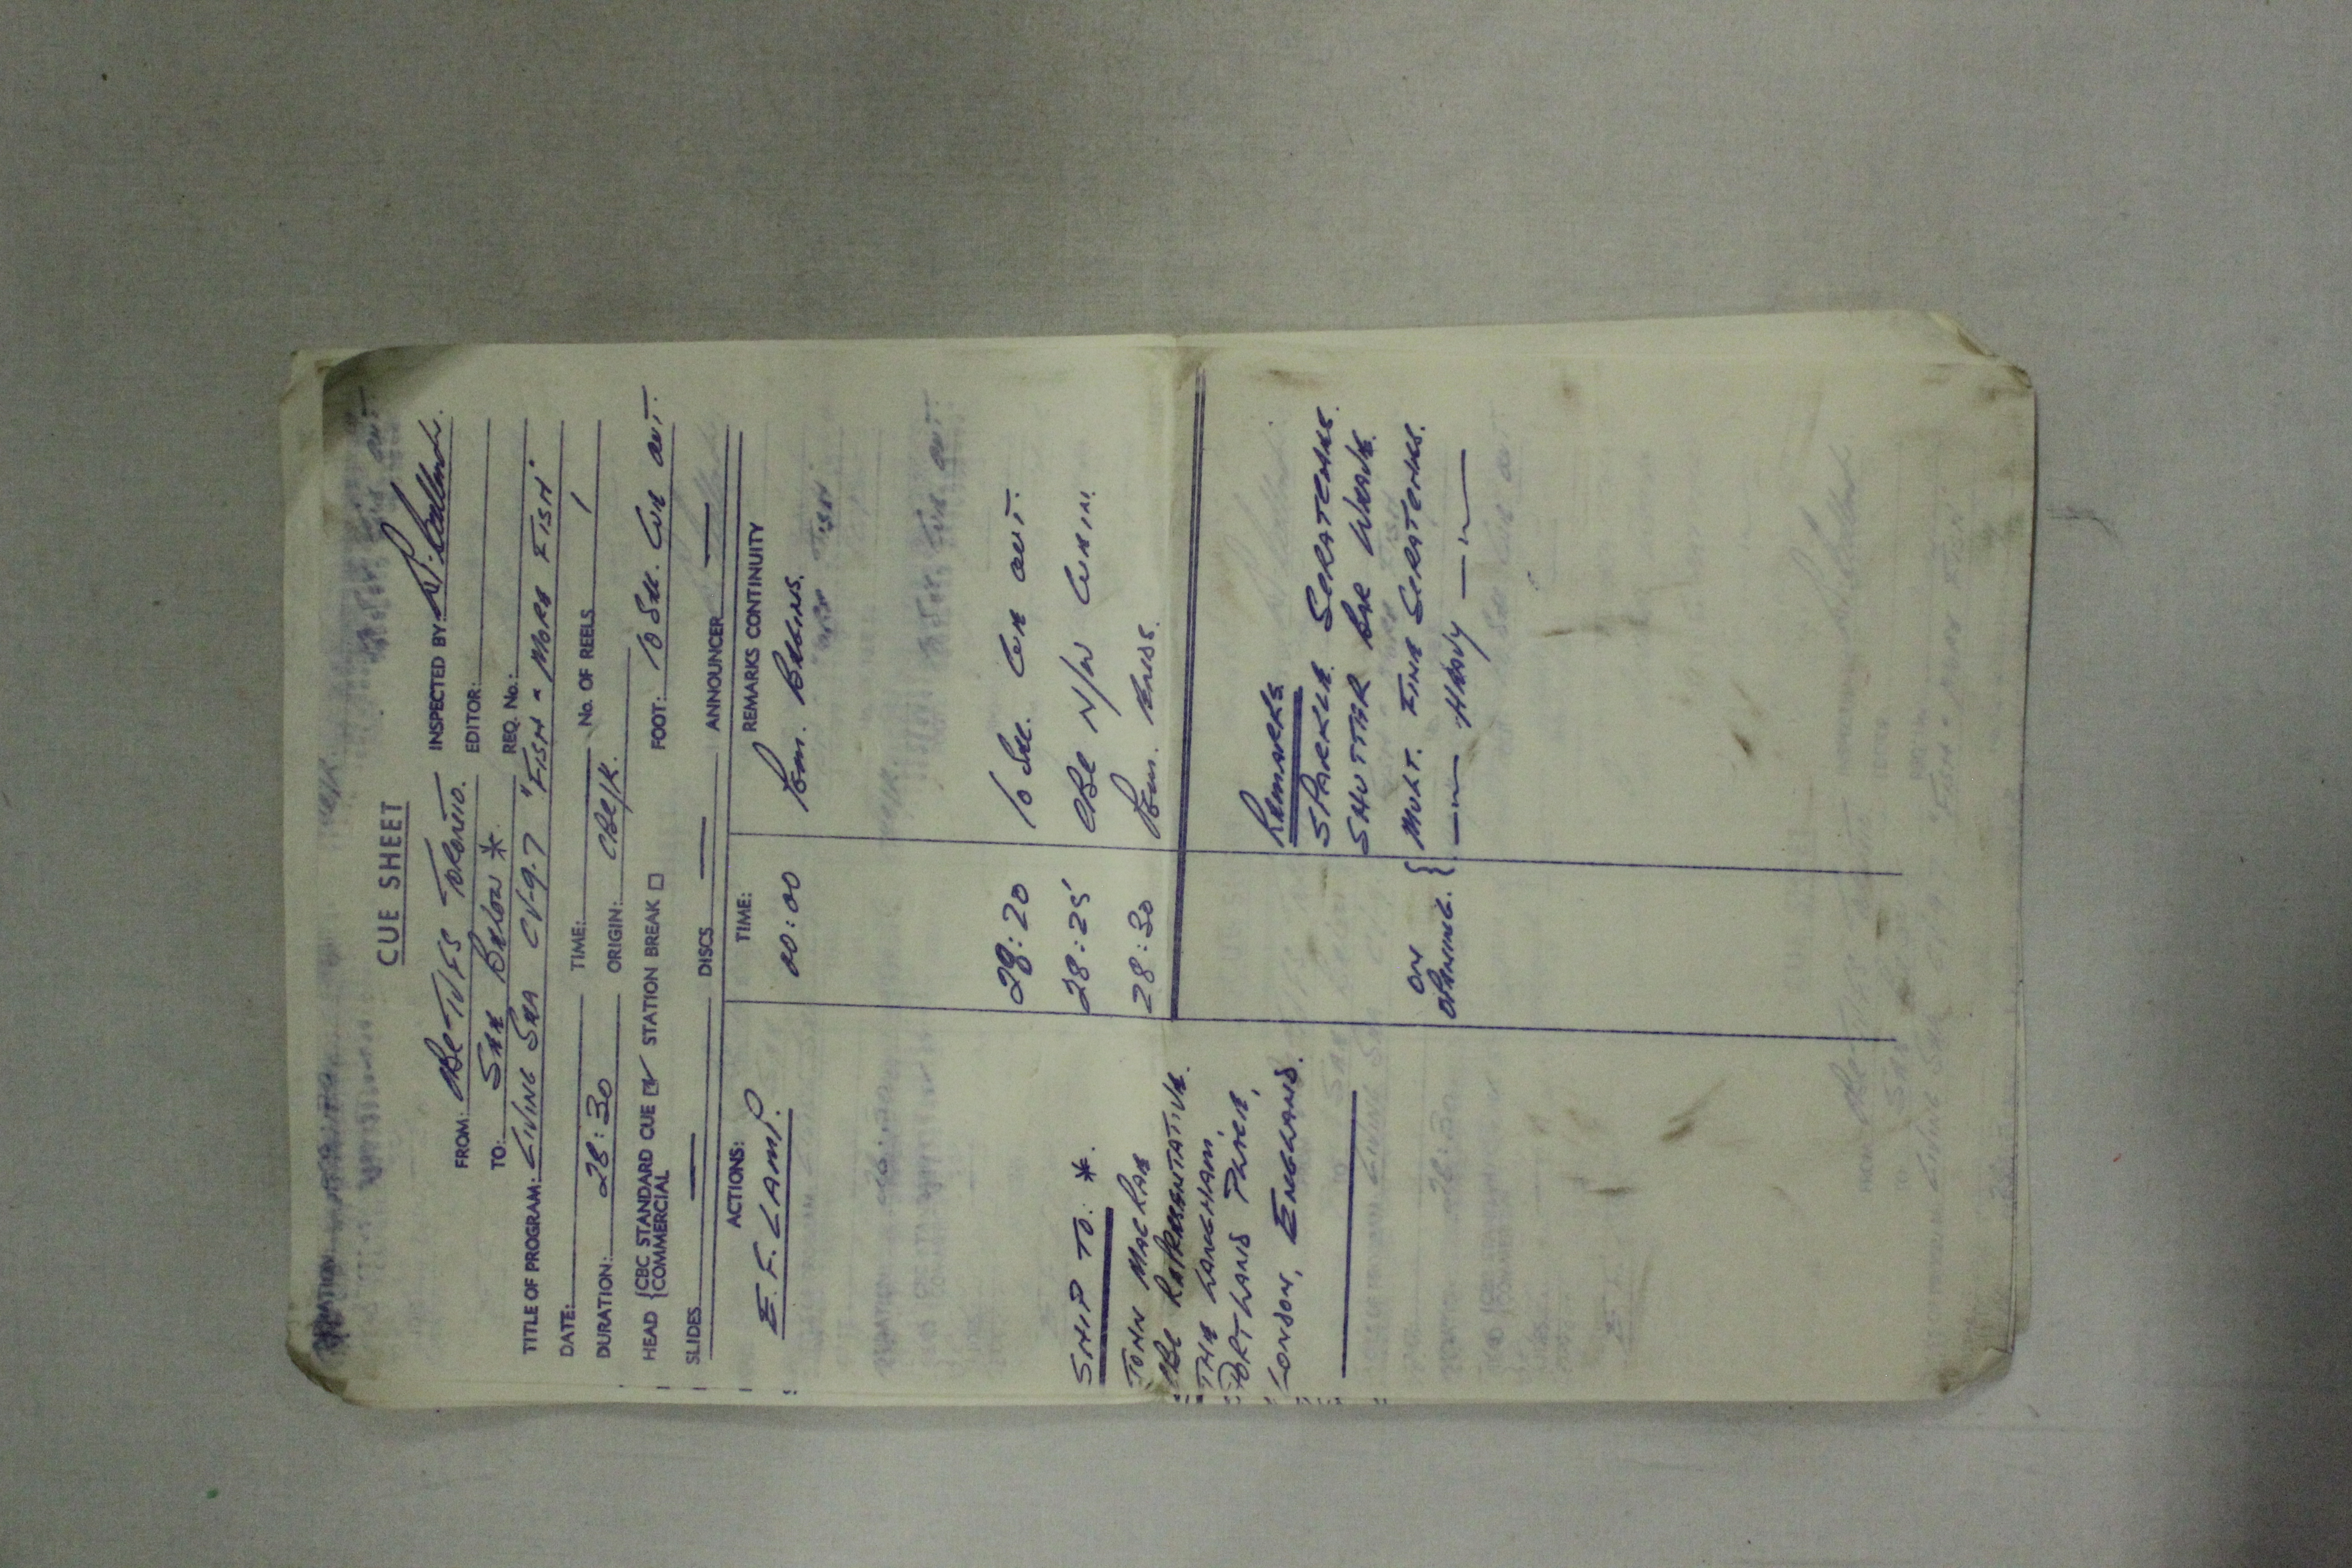 CUE SHEET
FROM: CBC-TVFS TORONTO. INSPECTED BY
TO: SEE BELOW * EDITOR:
REQ. No.:
TITLE OF PROGRAM: LIVING SEA CV-9-7 "FISH & MORE FISH"
DATE: TIME: No. OF REELS 1
DURATION: 28:30 ORIGIN: CBC/K.
HEAD { CBC STANDARD CUE ☑ STATION BREAK ☐ FOOT: 10 SEC. CUE OUT.
{ COMMERCIAL
SLIDES — DISCS — ANNOUNCER —
ACTIONS: TIME: REMARKS CONTINUITY
E.F. LAMP. 00:00 PGM. BEGINS.
28:20 10 SEC. CUE OUT.
28:25 CBC N/W CUEIN.
28:30 PGM. ENDS.
SHIP TO: *.
JOHN MACRAE
CBC REPRESENTATIVE.
THE LANGHAM,
PORTLAND PLACE,
LONDON, ENGLAND.
REMARKS
SPARKLE SCRATCHES.
SHUTTER BAR WEAVE.
ON OPENING. { MULT. FINE SCRATCHES.
—"— HEAVY —"—